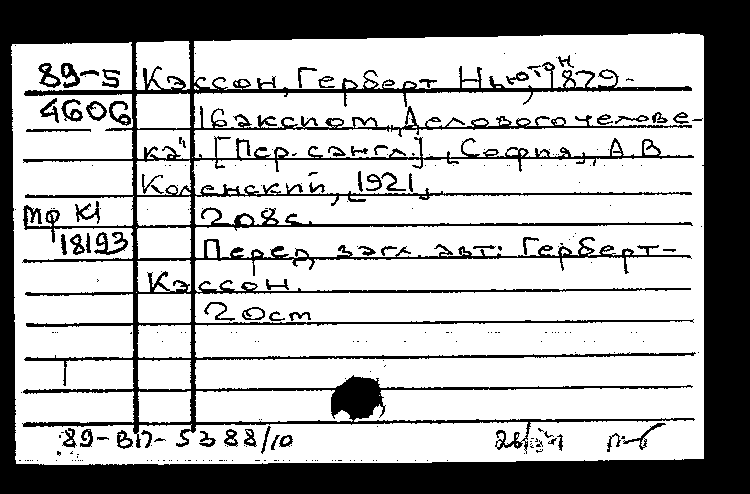 89-5 Кэссон, Герберт Ньютон, 1879-
4606 16 аксиом „Делового челове-
ка". [Пер. с англ.]. [София], А.В.
Коленский, [1921].
Мф К1 208 с.
18193 Перед загл. авт: Герберт-
Кэссон.
20 cm
89-ВП-5388/10